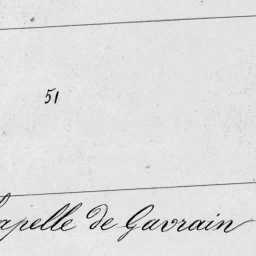 51
apelle de Gavrain